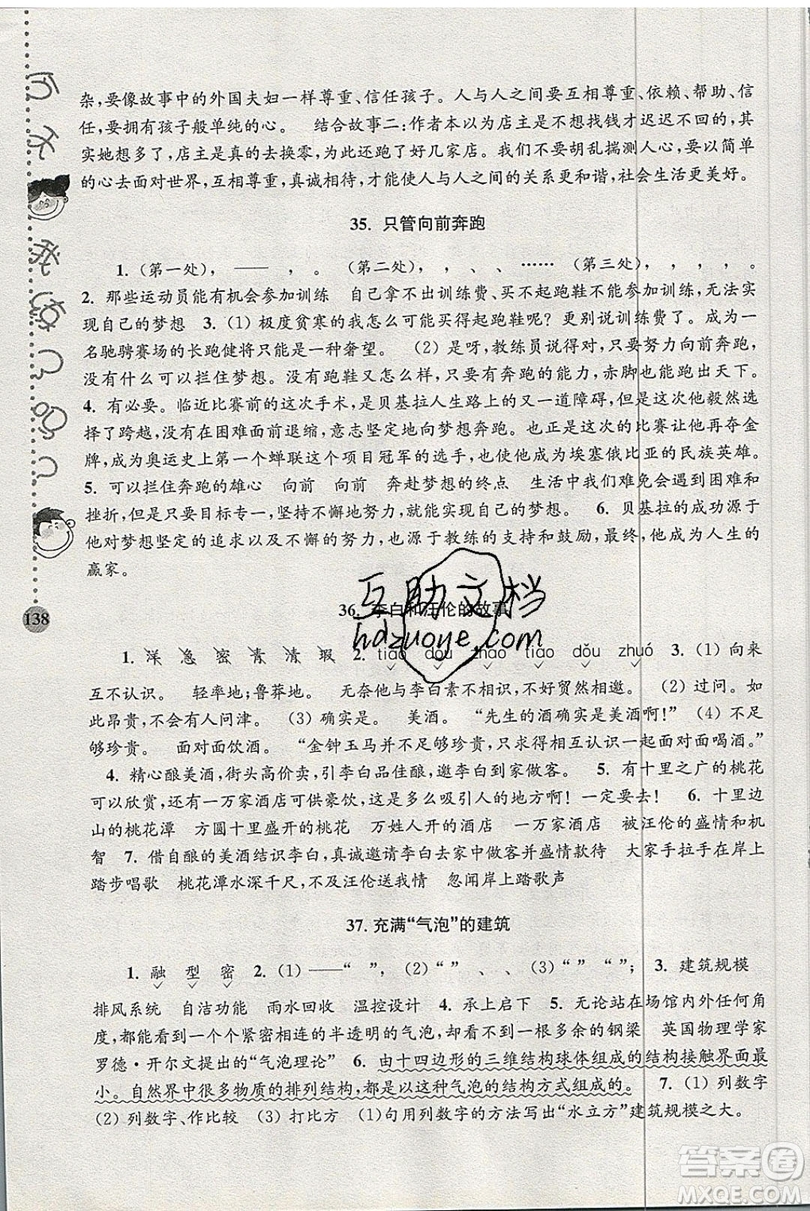 杂,要像故事中的外国夫妇一样尊重、信任孩子。人与人之间要互相尊重、依赖、帮助、信
任,要拥有孩子般单纯的心。 结合故事二:作者本以为店主是不想找钱才迟迟不回的,其
实她想多了,店主是真的去换零,为此还跑了好几家店。我们不要胡乱揣测人心,要以简单
的心去面对世界,互相尊重,真诚相待,才能使人与人之间的关系更和谐,社会生活更美好。
35. 只管向前奔跑
1. (第一处), —— , 。 (第二处), 、 、 …… (第三处), , , , 。
2. 那些运动员能有机会参加训练 自己拿不出训练费、买不起跑鞋而不能参加训练,无法实
现自己的梦想 3. (1) 极度贫寒的我怎么可能买得起跑鞋呢? 更别说训练费了。成为一
名驰骋赛场的长跑健将只能是一种奢望。 (2) 是呀,教练员说得对,只要努力向前奔跑,
没有什么可以拦住梦想。没有跑鞋又怎么样,只要有奔跑的能力,赤脚也能跑出天下。
4. 有必要。临近比赛前的这次手术,是贝基拉人生路上的一道障碍,但是他毅然选
择了跨越,没有在困难面前退缩,意志坚定地向梦想奔跑。也正是这次的比赛让他再夺金
牌,成为奥运史上第一个蝉联这个项目冠军的选手,也使他成为埃塞俄比亚的民族英雄。
5. 可以拦住奔跑的雄心 向前 向前 奔赴梦想的终点 生活中我们也会遇到困难和
挫折,可只要目标专一,坚持不懈地努力,就能实现自己的梦想。 6. 贝基拉的成功源于
他对梦想坚定的追求以及不懈的努力,也源于教练的支持和鼓励,最终,他成为人生的
赢家。
138
36. 李白和汪伦的故事
1. 洋 急 密 青 清 瑕 2. tiāo dòu zhāo tiáo dǒu zhuó 3. (1) 向来
互不认识。 轻率地;鲁莽地。 无奈他与李白素不相识,不好贸然相邀。 (2) 过问。 如
此昂贵,不可能有人问津。 (3) 确实是。 美酒。 “先生的酒确实是美酒啊!” (4) 不足
够珍贵。 面对面饮酒。 “金钟玉马并不足够珍贵,只求得相互认识一起面对喝酒。”
4. 精心酿美酒,街头高价卖,引李白品佳酿,邀李白到家做客。 5. 有十里之广的桃花
可以欣赏,还有一万家酒店可供豪饮,这是多么吸引人的地方啊! 一定要去! 6. 十里边
山的桃花潭 方圆十里盛开的桃花 万姓人开的酒店 一万家酒店 被汪伦的盛情和机
智 7. 借自酿的美酒结识李白,真诚邀请李白去家中做客并盛情款待 大家手拉手在岸上
踏步唱歌 桃花潭水深千尺,不及汪伦送我情 忽闻岸上踏歌声
37. 充满“气泡”的建筑
1. 融 型 密 2. (1) ——“ ”, (2)“ ” 、 、 (3)“ ”“ ”; 3. 建筑规模
排风系统 自洁功能 雨水回收 温控设计 4. 承上启下 5. 无论站在场馆内外任何角
度,都能看到一个个紧密相连的半透明的气泡,却看不到有多长的钢梁 英国物理学家
罗德·开尔文提出的“气泡理论” 6. 由十四边形的三维结构球体组成的结构接触界面最
小。自然界中很多物质的排列结构,都是以这种气泡的结构方式组成的。 7. (1) 列数字
(2) 列数字、作比较 (3) 打比方 (1)句用列数字的方法写出“水立方”建筑规模之大。
互助文档
hdzuoye.com
答案卷
MXQE.COM